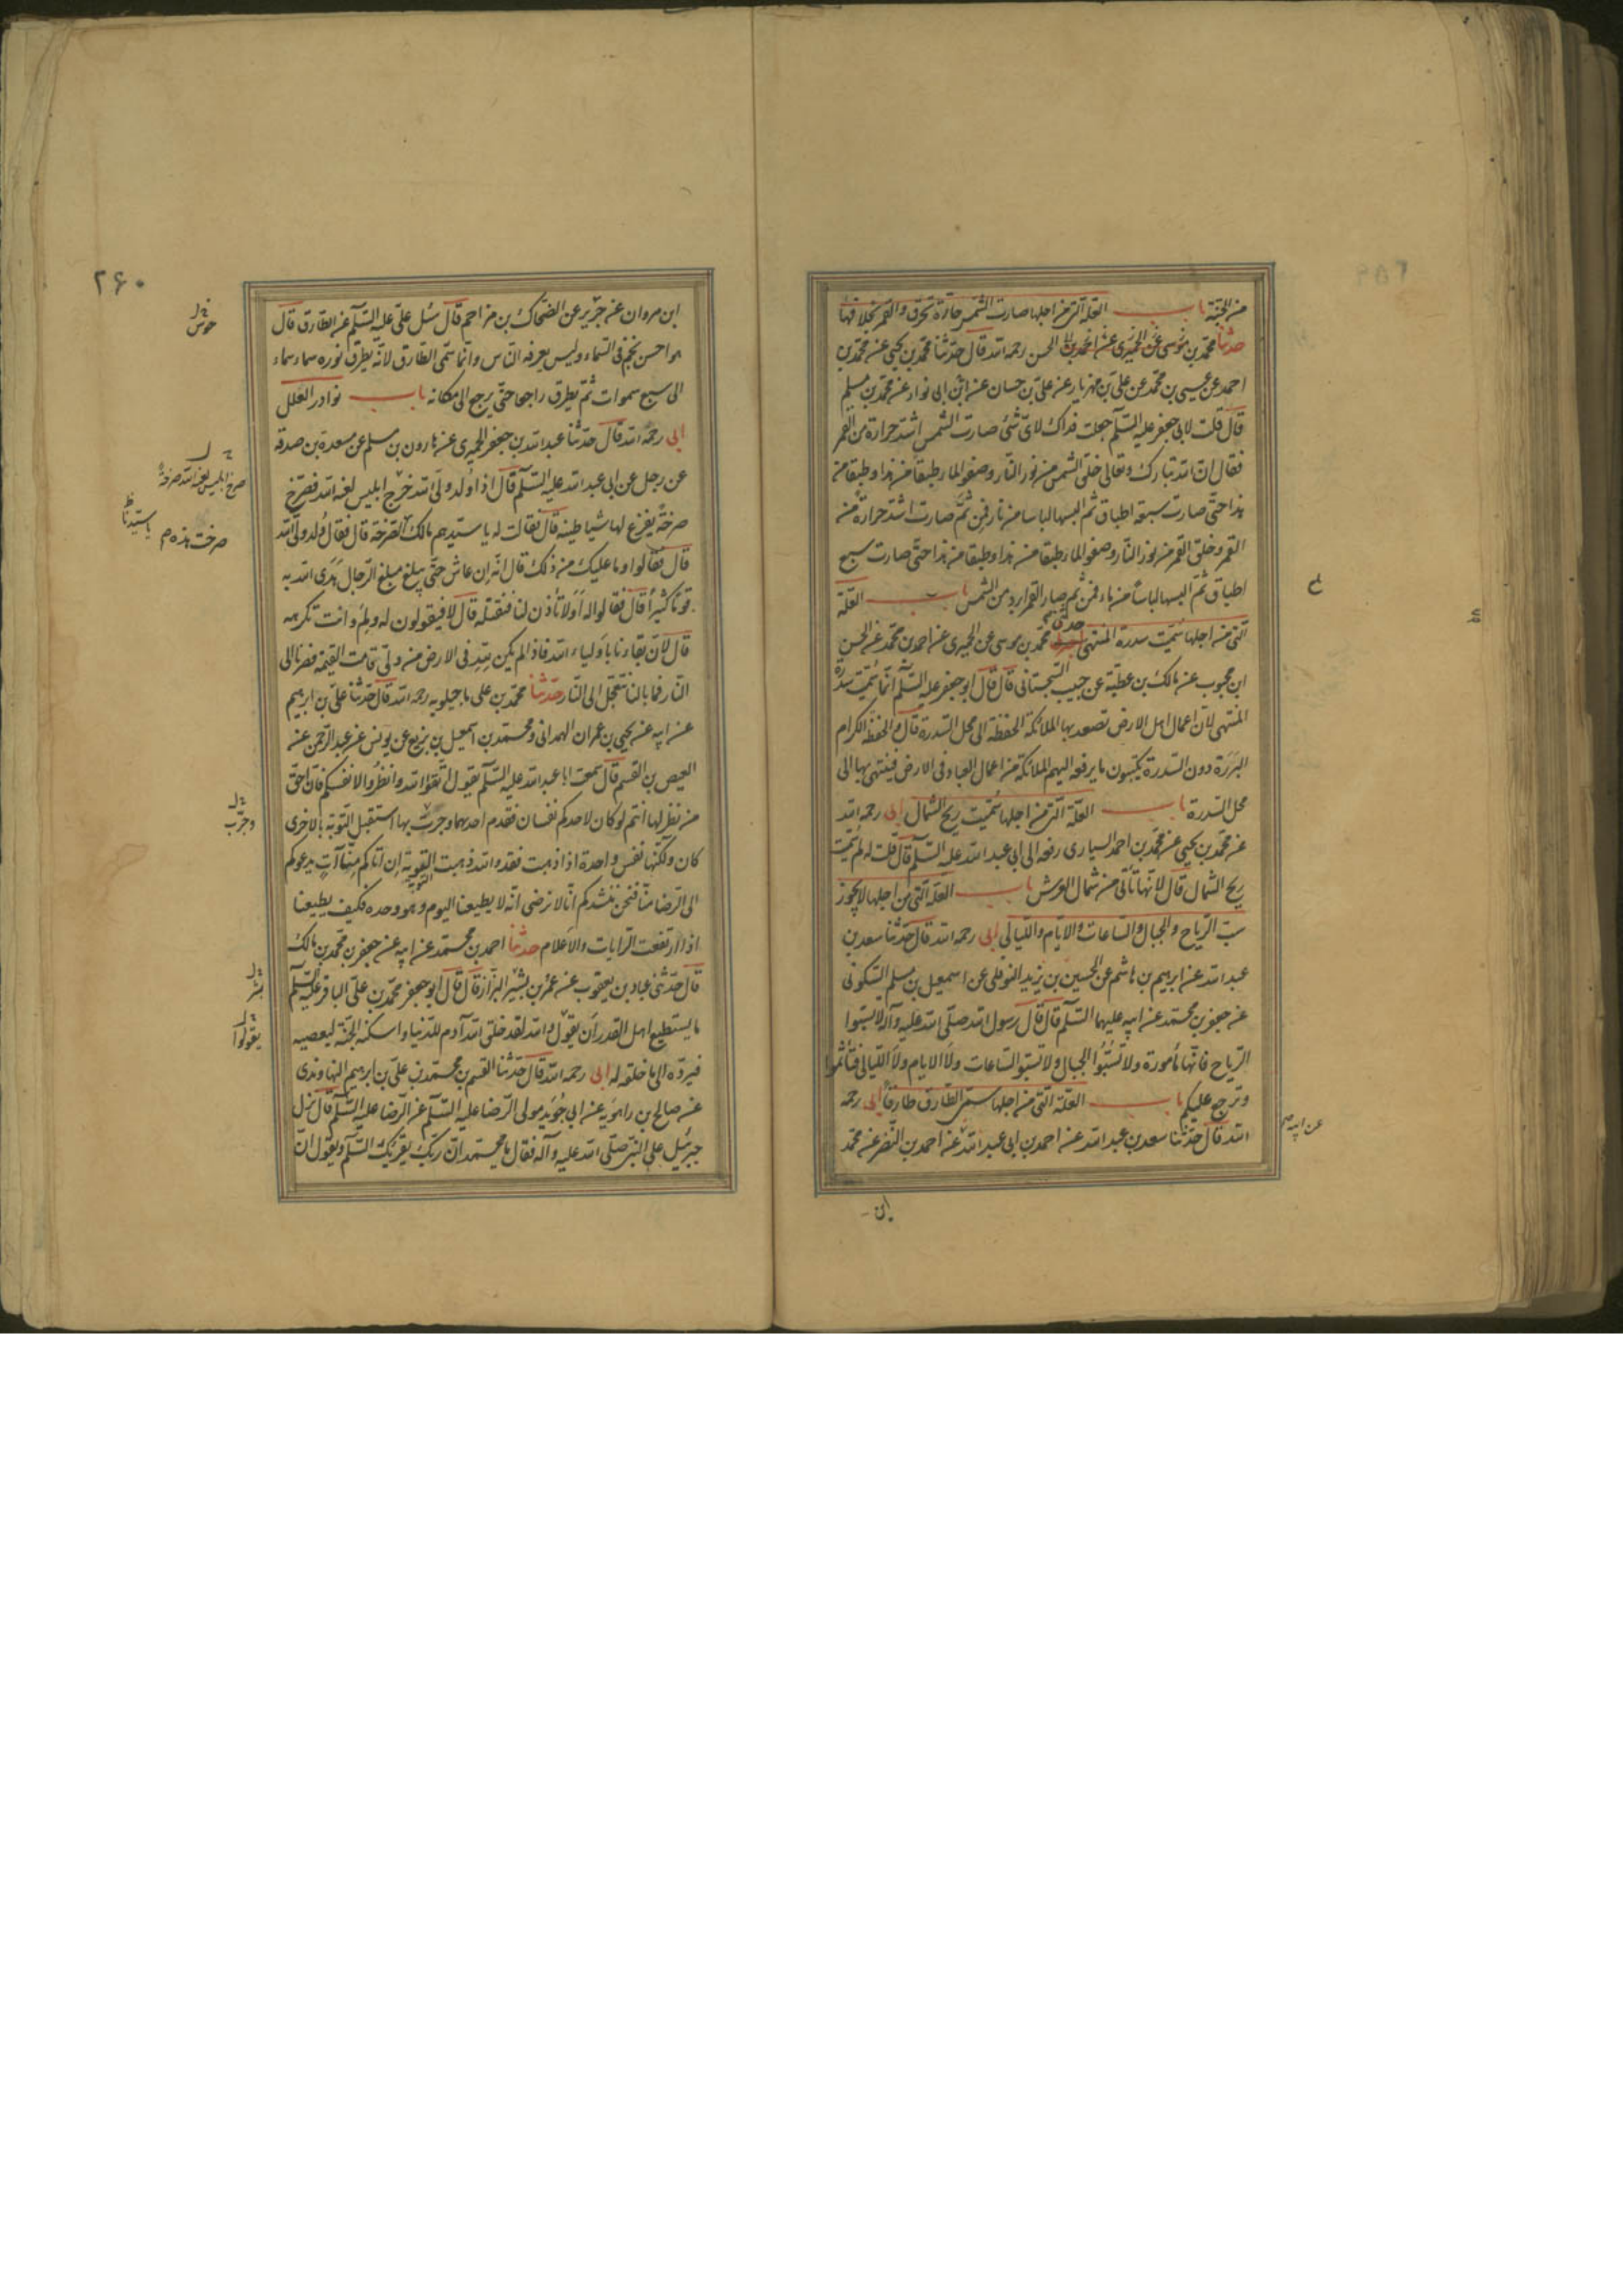 من الجنة باب العلة التي من اجلها صارت الشمس حارة تحرق والقمر بخلافها
حدثنا محمد بن موسى عن الحميري عن احمد بن الحسن رحمه الله قال حدثنا محمد بن يحيى عن محمد بن
احمد عن عيسى بن محمد عن علي بن مهزيار عن علي بن حسان عن ابي نواد عن محمد بن مسلم
قال قلت لابي جعفر عليه السلم جعلت فداك لاي شئ صارت الشمس اشد حرارة من القمر
فقال ان الله تبارك وتعالى خلق الشمس من نور النار وصفو الماء طبقا من هذا وطبقا من
هذا حتى صارت سبعة اطباق ثم البسها لباسا من نار فمن ثم صارت اشد حرارة من
القمر وخلق القمر من نور النار وصفو الماء طبقا من هذا وطبقا من هذا حتى صارت سبع
اطباق ثم البسها لباسا من ماء فمن ثم صار القمر ابرد من الشمس باب العلة
التي من اجلها سميت سدرة المنتهى حدثني محمد بن موسى عن الحميري عن احمد بن محمد عن الحسن
ابن محبوب عن مالك بن عطية عن حبيب السجستاني قال قال ابو جعفر عليه السلم انما سميت سدرة
المنتهى لان اعمال اهل الارض تصعد بها الملائكة الحفظة الى محل السدرة قال والحفظة الكرام
البررة دون السدرة يكتبون ما يرفعه اليهم الملائكة من اعمال العباد في الارض فينتهى بها الى
محل السدرة باب العلة التي من اجلها سميت ريح الشمال ابي رحمه الله
عن محمد بن يحيى عن محمد بن احمد السياري رفعه الى ابي عبد الله عليه السلم قال قلت له لم سميت
ريح الشمال قال لانها تأتي من شمال العرش باب العلة التي من اجلها لا يجوز
سب الرياح والجبال والساعات والايام والليالي ابي رحمه الله قال حدثنا سعد بن
عبد الله عن ابرهيم بن هاشم عن الحسين بن يزيد النوفلي عن اسمعيل بن مسلم السكوني
عن جعفر بن محمد عن ابيه عليهما السلم قال قال رسول الله صلى الله عليه وآله لا تسبوا
الرياح فانها مأمورة ولا تسبوا الجبال ولا تسبوا الساعات ولا الايام ولا الليالي فتأثموا
وترجع عليكم باب العلة التي من اجلها سمي الطارق طارقا ابي رحمه
الله قال حدثنا سعد بن عبد الله عن احمد بن ابي عبد الله عن احمد بن النضر عن محمد
عن ابيه
ابن
٢۶٠
ابن مروان عن جرير عن الضحاك بن مزاحم قال سئل علي عليه السلم عن الطارق قال
هو احسن نجم في السماء وليس يعرفه الناس وانما سمى الطارق لانه يطرق نوره سماء سماء
الى سبع سموات ثم يطرق راجعا حتى يرجع الى مكانه باب نوادر العلل
ابي رحمه الله قال حدثنا عبد الله بن جعفر الحميري عن هارون بن مسلم عن مسعدة بن صدقة
عن رجل عن ابي عبد الله عليه السلم قال اذا ولد ولي الله خرج ابليس لعنه الله فصرخ
صرخة يفزع لها شياطينه قال فقالت له يا سيدهم مالك الصرخة قال فقال ولد ولي الله
قال فقالوا وما عليك من ذلك قال انه ان عاش حتى يبلغ مبلغ الرجال هدى الله به
قوما كثيرا قال فقالوا له اولا تأذن لنا فنقتله قال لا فيقولون له ولم وانت تكرهه
قال لان بقاءنا باولياء الله فاذا لم يكن لله في الارض من ولي قامت القيمة فصرنا الى
النار فما بالنا نتعجل الى النار حدثنا محمد بن علي ماجيلويه رحمه الله قال حدثنا علي بن ابرهيم
عن ابيه عن يحيى بن عمران الهمداني ومحمد بن اسمعيل بن بزيع عن يونس عن عبد الرحمن عن
العيص بن القسم قال سمعت ابا عبد الله عليه السلم يقول اتقوا الله وانظروا لانفسكم فان احق
من نظر لها انتم لو كان لاحدكم نفسان فقدم احديهما وجرب بها استقبل التوبة بالاخرى
كان ولكنها نفس واحدة اذا ذهبت فقد والله ذهبت التوبة ان اتاكم منا آت يدعوكم
الى الرضا منا فنحن ننشدكم انا لا نرضى انه لا يطيعنا اليوم وهو وحده فكيف يطيعنا
اذا ارتفعت الرايات والاعلام حدثنا احمد بن محمد عن ابيه عن جعفر بن محمد بن مالك
قال حدثني عباد بن يعقوب عن عمر بن بشير البزاز قال قال ابو جعفر محمد بن علي الباقر عليه السلم
ما يستطيع اهل القدر ان يقول والله لقد خلق الله آدم للدنيا واسكنه الجنة ليعصيه
فيرده الى ما خلقه له ابي رحمه الله قال حدثنا القسم بن محمد بن علي بن ابرهيم النهاوندي
عن صالح بن راهويه عن ابي جويد مولى الرضا عليه السلم عن الرضا عليه السلم قال نزل
جبرئيل على النبي صلى الله عليه وآله فقال يا محمد ان ربك يقرئك السلم ويقول ان
صرخ ابليس لعنه الله صرخة
يا سيدنا
صرخت هذه م
وجرب
بشر
يقولوا